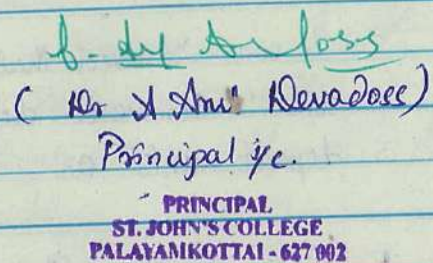 (Dr A Devadoss)
Principal i/c.
PRINCIPAL
ST. JOHN'S COLLEGE
PALAYAMKOTTAI - 627 002